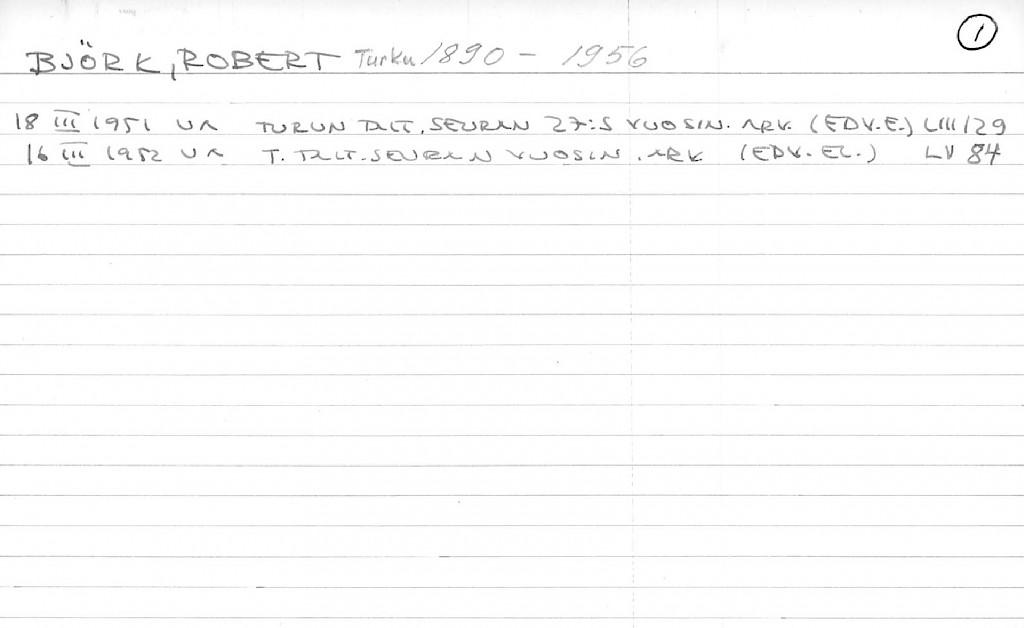 1
BJÖRK, ROBERT Turku 1890 - 1956
18 III 1951 UA TURUN TAIT. SEURAN 27:S VUOSIN. ARV. (EDV.E.) LIII/29
16 III 1952 UA T. TAIT. SEURAN VUOSIN. ARV. (EDV. EL.) LV 84